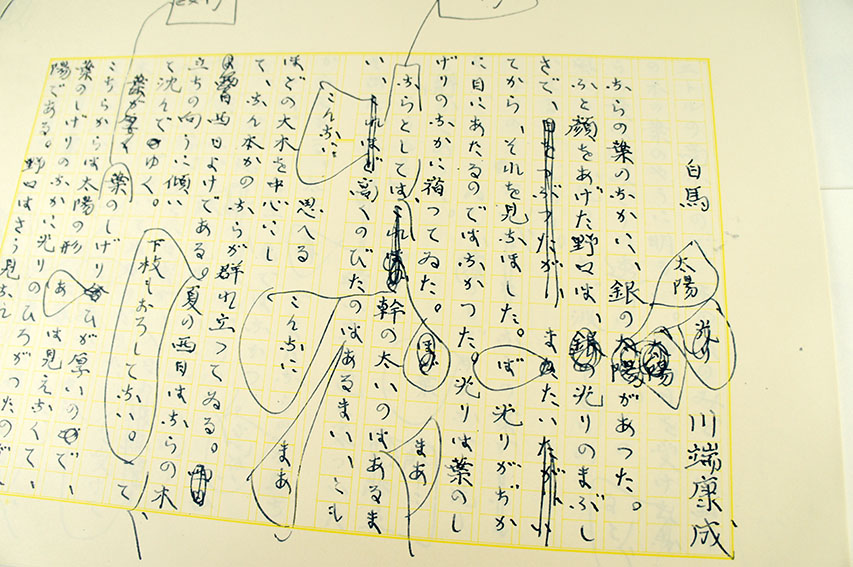 白馬 川端康成
太陽
光り
ならの葉のなかに、銀の太陽があつた。
ふと顔をあげた野口は、銀の光りのまぶし
さで、目をつぶつたが、またたいたが、
てから、それを見なほした。ば 光りがぢか
に目にあたるのではなかつた。光りは葉のし
げりのなかに宿つてゐた。
ほど
まあ
ならとしては、幹の太いのはあるま
い、これほど高くのびたのはあるまい、とも
こんなに
こんなに
まあ
思へる
ほどの大木を中心にし
て、なん本かのならが群れ立つてゐる。
の西日よけである。夏の西日はならの木
立ちの向うに傾い
て沈んでゆく。
下枝もおろしてない。
葉が厚く
葉のしげりが厚いので、
こちらからは太陽の形は見えなくて、
葉のしげりのなかに光りのひろがつたのが
陽である。野口はさう見なれ